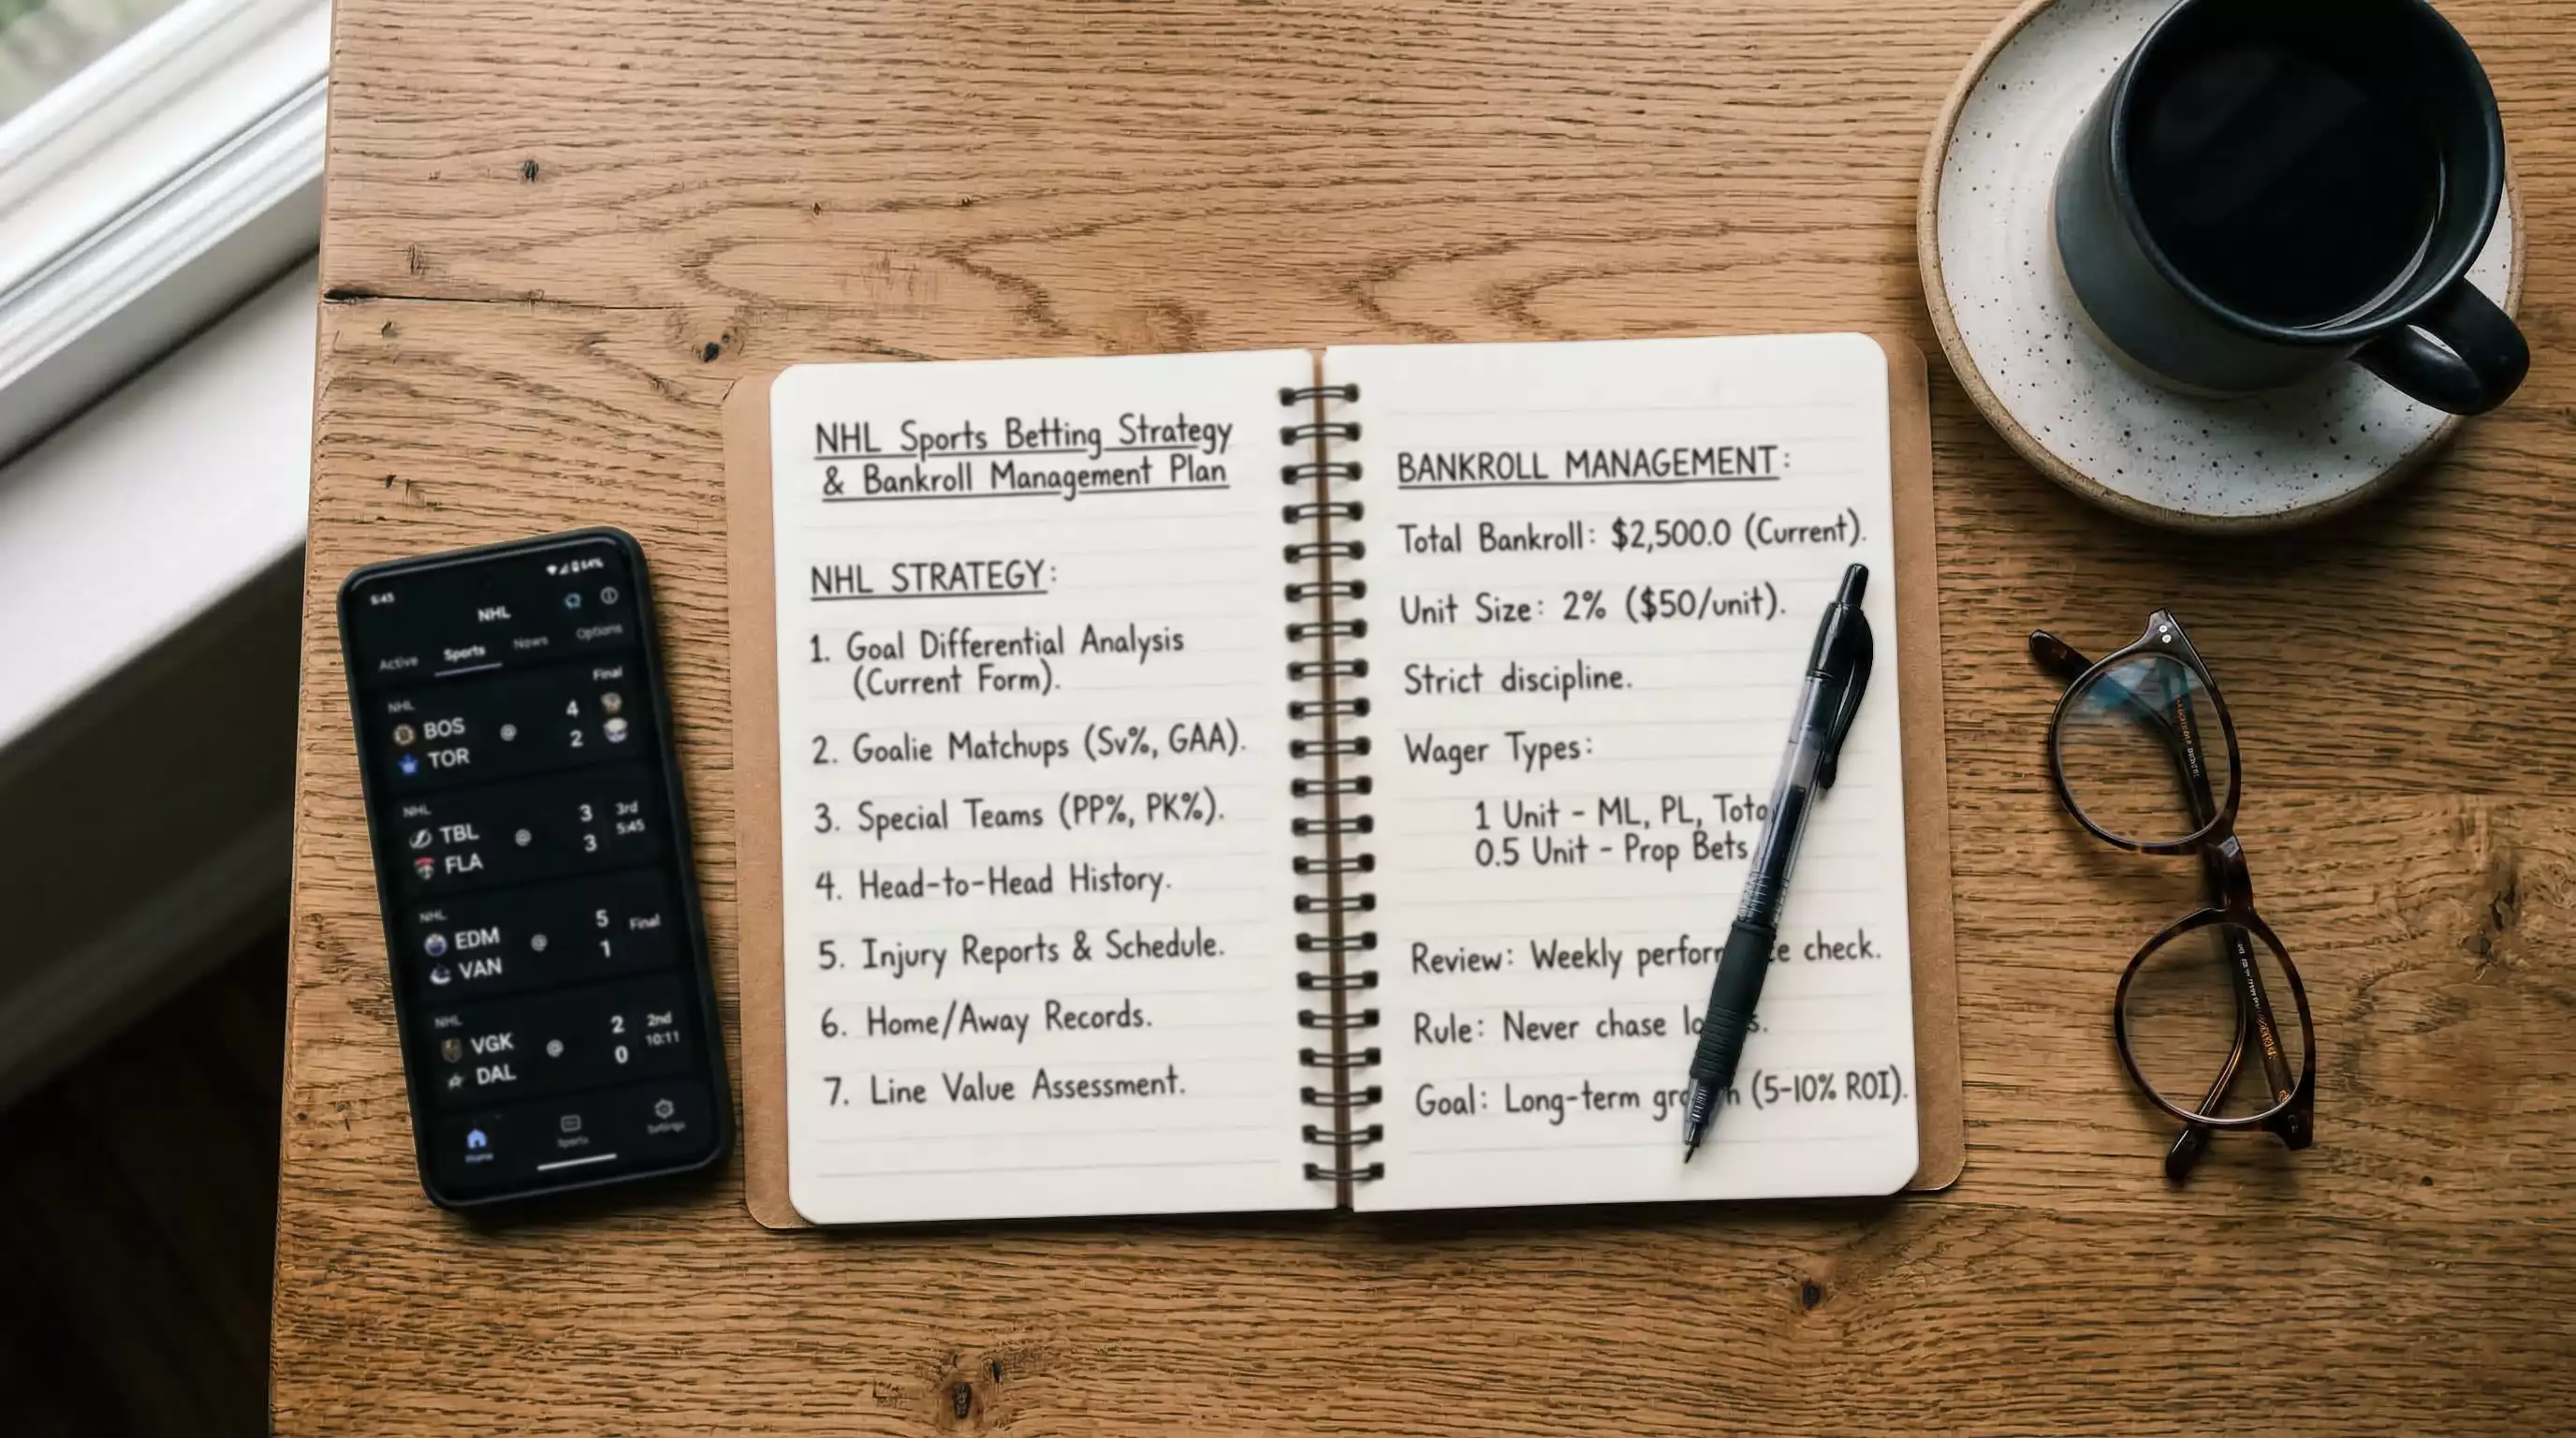 5:45
64%
NHL
Active Sports News Options
Final
NHL
BOS @ 4
TOR 2
NHL
TBL @ 3 3rd
FLA 3 5:45
NHL
EDM @ 5 Final
VAN 1
NHL
VGK @ 2 2nd
DAL 0 10:11
Home Sports Settings
NHL Sports Betting Strategy
& Bankroll Management Plan
NHL STRATEGY:
1. Goal Differential Analysis
(Current Form).
2. Goalie Matchups (Sv%, GAA).
3. Special Teams (PP%, PK%).
4. Head-to-Head History.
5. Injury Reports & Schedule.
6. Home/Away Records.
7. Line Value Assessment.
BANKROLL MANAGEMENT:
Total Bankroll: $2,500.0 (Current).
Unit Size: 2% ($50/unit).
Strict discipline.
Wager Types:
1 Unit - ML, PL,
0.5 Unit - Prop Bets
Review: Weekly check.
Rule: Never chase
Goal: Long-term (5-10% ROI).